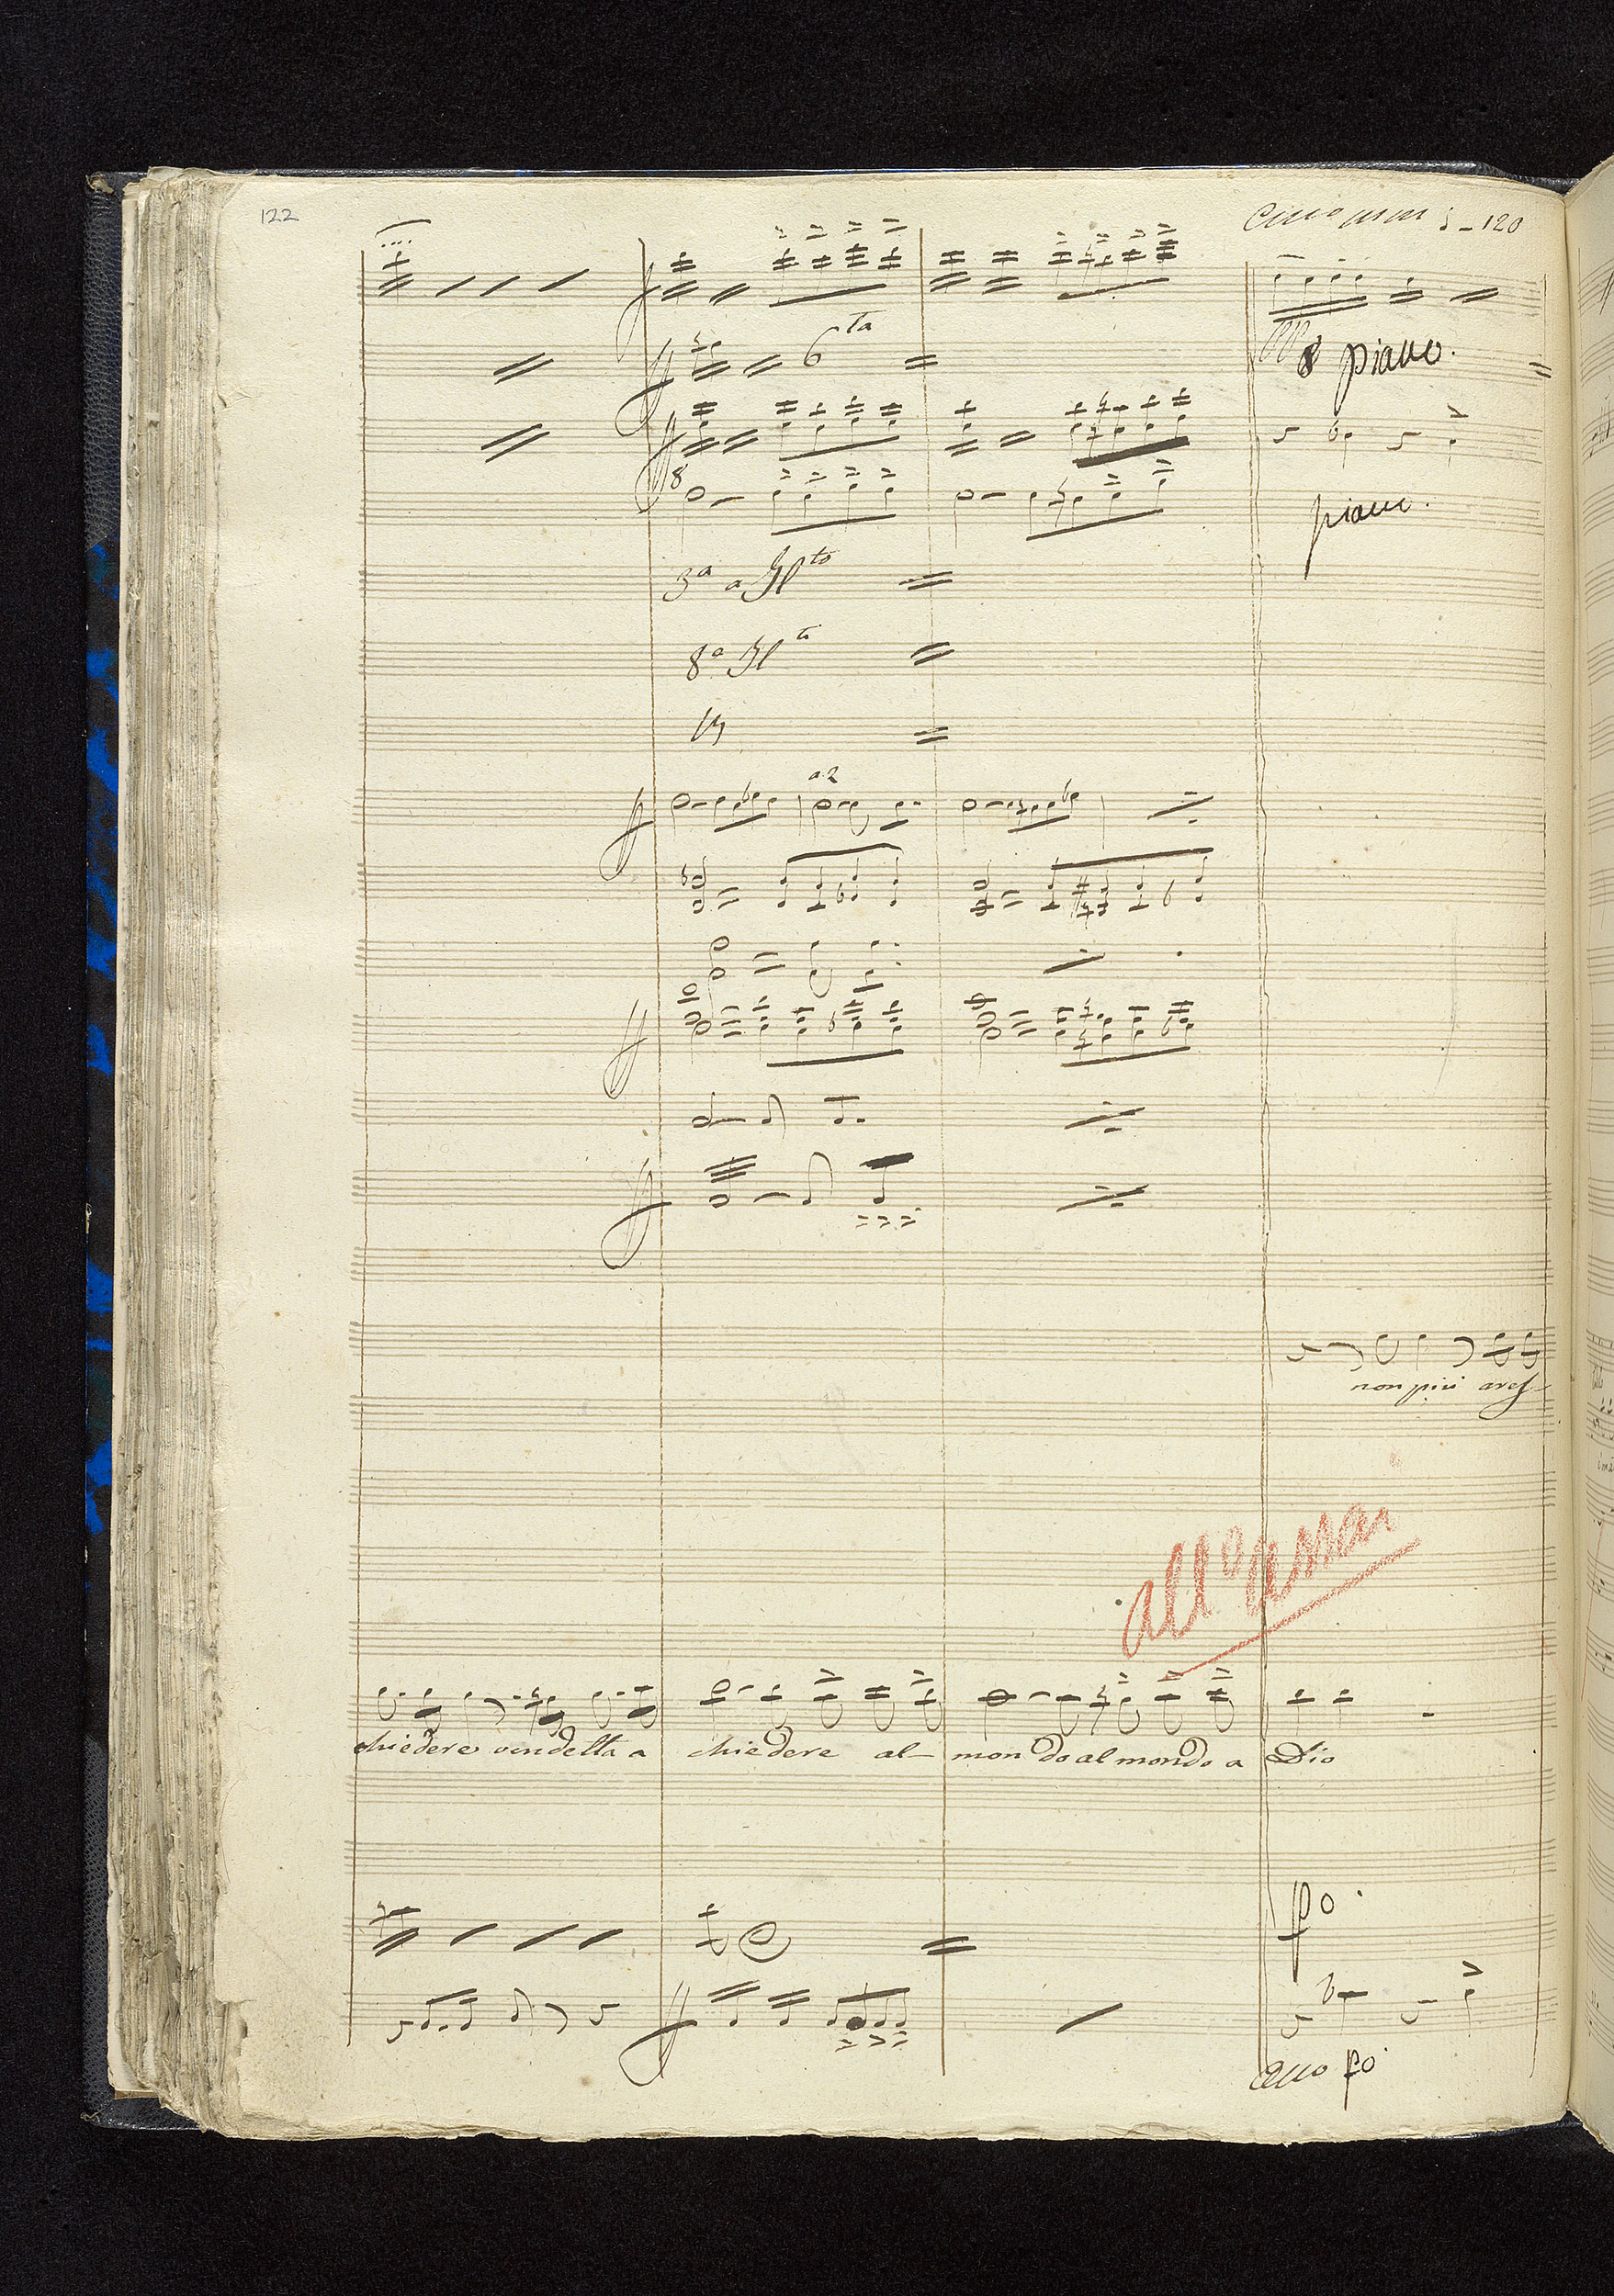 122
- 120
6ta
8 piano.
8
piano.
3a a Fl to
8a Fl to
a 2
non più
allo assai
chiedere vendetta a chiedere al mondo al mondo a Dio
po.
po